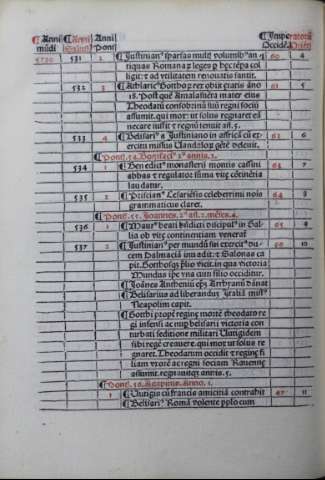 Anni mundi Anni Salutis Anni Pont Imperatorum Occidētis Oriētis
5730 531 2 ¶ Iustinianus sparsas multis voluminibus an 60 4
tiquas Romanas leges
ligit: et ad vtilitatem renouatas sanxit.
532 3 ¶ Athlaric Gothorū rex obit gratis anno 61 5
18. Post quē Amalasintha mater eius
Theodatū consobrinū suū regni sociū
assumit. qui mox vt solus regnaret eā
necare iussit: et regnū tenuit añ. 5.
533 4 ¶ Belisari a Iustiniano in africā cū ex 62 6
ercitu missus Uandalorū gētē deleuit.
¶ Pons. 54. Bonifaci 2ˢ annis. 2.
534 1 ¶ Benedict monasterij montis cassini 63 7
abbas et regulator summa vite cōtinētia
laudatur.
535 2 ¶ Priscian Cesariēsis celeberrimi nois 64 8
grammaticus claret.
¶ Pons. 55. Joannes. 2ˢ añ. 2. mēses. 4.
536 1 ¶ Maurˢ beati bñdicti discipulˢ in Gal
lia ob vite continentiam venerat
537 2 ¶ Iustinian per mundū sui exercit du 66 10
cem Dalmaciā inuadit: et Salonas ca
pit. Gothosq prelio vicit. in qua victoria
Mundus ipse vna cum filio occiditur.
Belisarius ad liberandū Italiā missˢ
Neapolim capit.
¶ Gothi propter regine mortē theodato re
gi infensi ac nup belisarii victoria con
turbati seditione militari Uungidem
sibi regē creauere. qui mox vt solus re
gnaret. Theodatum occidit et regine fi
liam vxorē ac regni sociam Rauenne
assumit. regnauitq annis. 5.
¶ Pons. 56. Agapitus. Anno. 1.
1 ¶ Uungis cū francis amicitiā contrahit 67 11
¶ Belisari Romā volente pplo cum